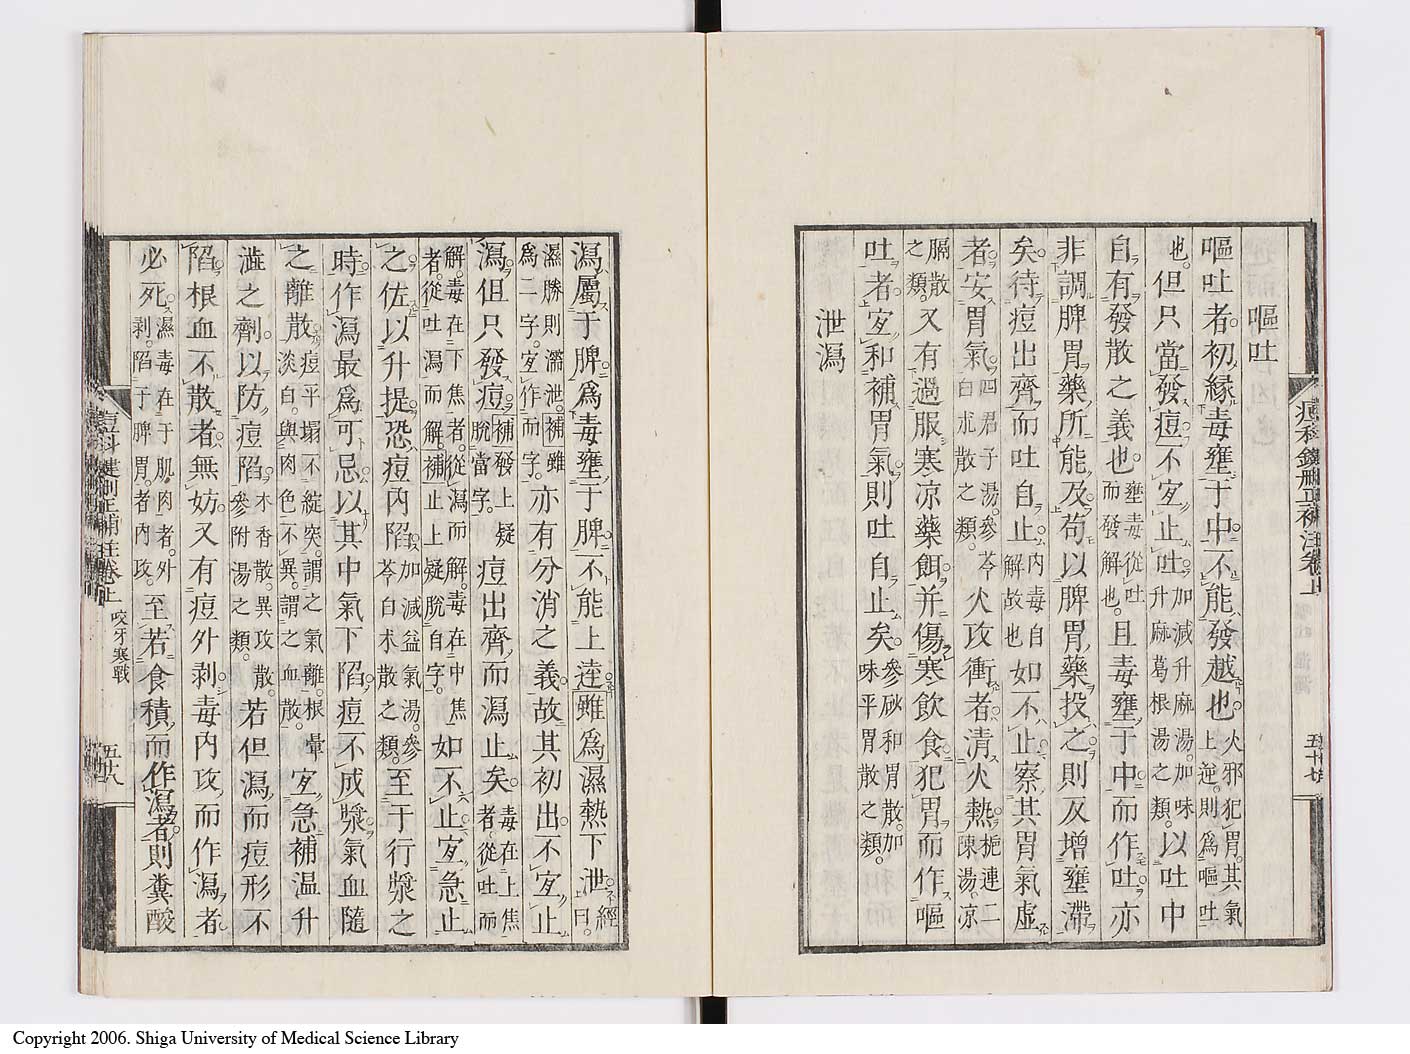 嘔吐
嘔吐者初緣毒壅于中不能發越也火邪犯胃其氣上逆則爲嘔吐
也但只當發痘不宐止吐加減升麻湯加味升麻葛根湯之類以吐中
自有發散之義也壅毒從吐而發解也且毒壅于中而作吐亦
非調脾胃藥所能及苟以脾胃藥投之則反增壅滯
矣待痘出齊而吐自止內毒自解故也如不止察其胃氣虛
者安胃氣四君子湯參苓白朮散之類火攻衝者清火熱梔連二陳湯凉
膈散之類又有過服寒凉藥餌并傷寒飲食犯胃而作嘔
吐者宐和補胃氣則吐自止矣參砂和胃散加味平胃散之類
泄瀉
痘科鍵刪正補注卷上
五十七
瀉屬于脾爲毒壅于脾不能上達雖爲濕熱下泄經曰
濕勝則濡泄補雖爲二字宐作而字亦有分消之義故其初出不宐止
瀉但只發痘補發上疑脫當字痘出齊而瀉止矣毒在上焦者從吐而
解毒在下焦者從瀉而解毒在中焦者從吐瀉而解補止上疑脫自字如不止宐急止
之佐以升提恐痘內陷加減益氣湯參苓白朮散之類至于行漿之
時作瀉最爲可忌以其中氣下陷痘不成漿氣血隨
之離散痘平塌不綻突謂之氣離根暈淡白與肉色不異謂之血散宐急補温升
澁之劑以防痘陷木香散異攻散參附湯之類若但瀉而痘形不
陷根血不散者無妨又有痘外剥毒內攻而作瀉者
必死濕毒在于肌肉者外剥陷于脾胃者內攻至若食積而作瀉者則糞酸
痘科鍵刪正補注卷上
咬牙寒戰
五十八
Copyright 2006. Shiga University of Medical Science Library